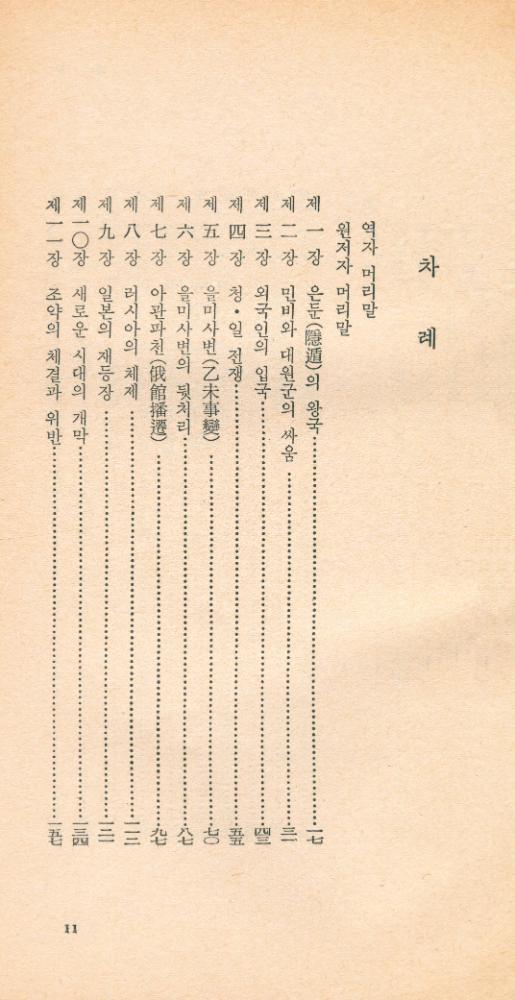 차 례
역자 머리말
원저자 머리말
제 一 장 은둔(隱遁)의 왕국……一七
제 二 장 민비와 대원군의 싸움……三一
제 三 장 외국인의 입국……四三
제 四 장 청·일 전쟁……五五
제 五 장 을미사변(乙未事變)……七〇
제 六 장 을미사변의 뒷처리……八七
제 七 장 아관파천(俄館播遷)……九七
제 八 장 러시아의 체제……一一二
제 九 장 일본의 재등장……一二一
제一〇장 새로운 시대의 개막……一三四
제一一장 조약의 체결과 위반……一五七
11